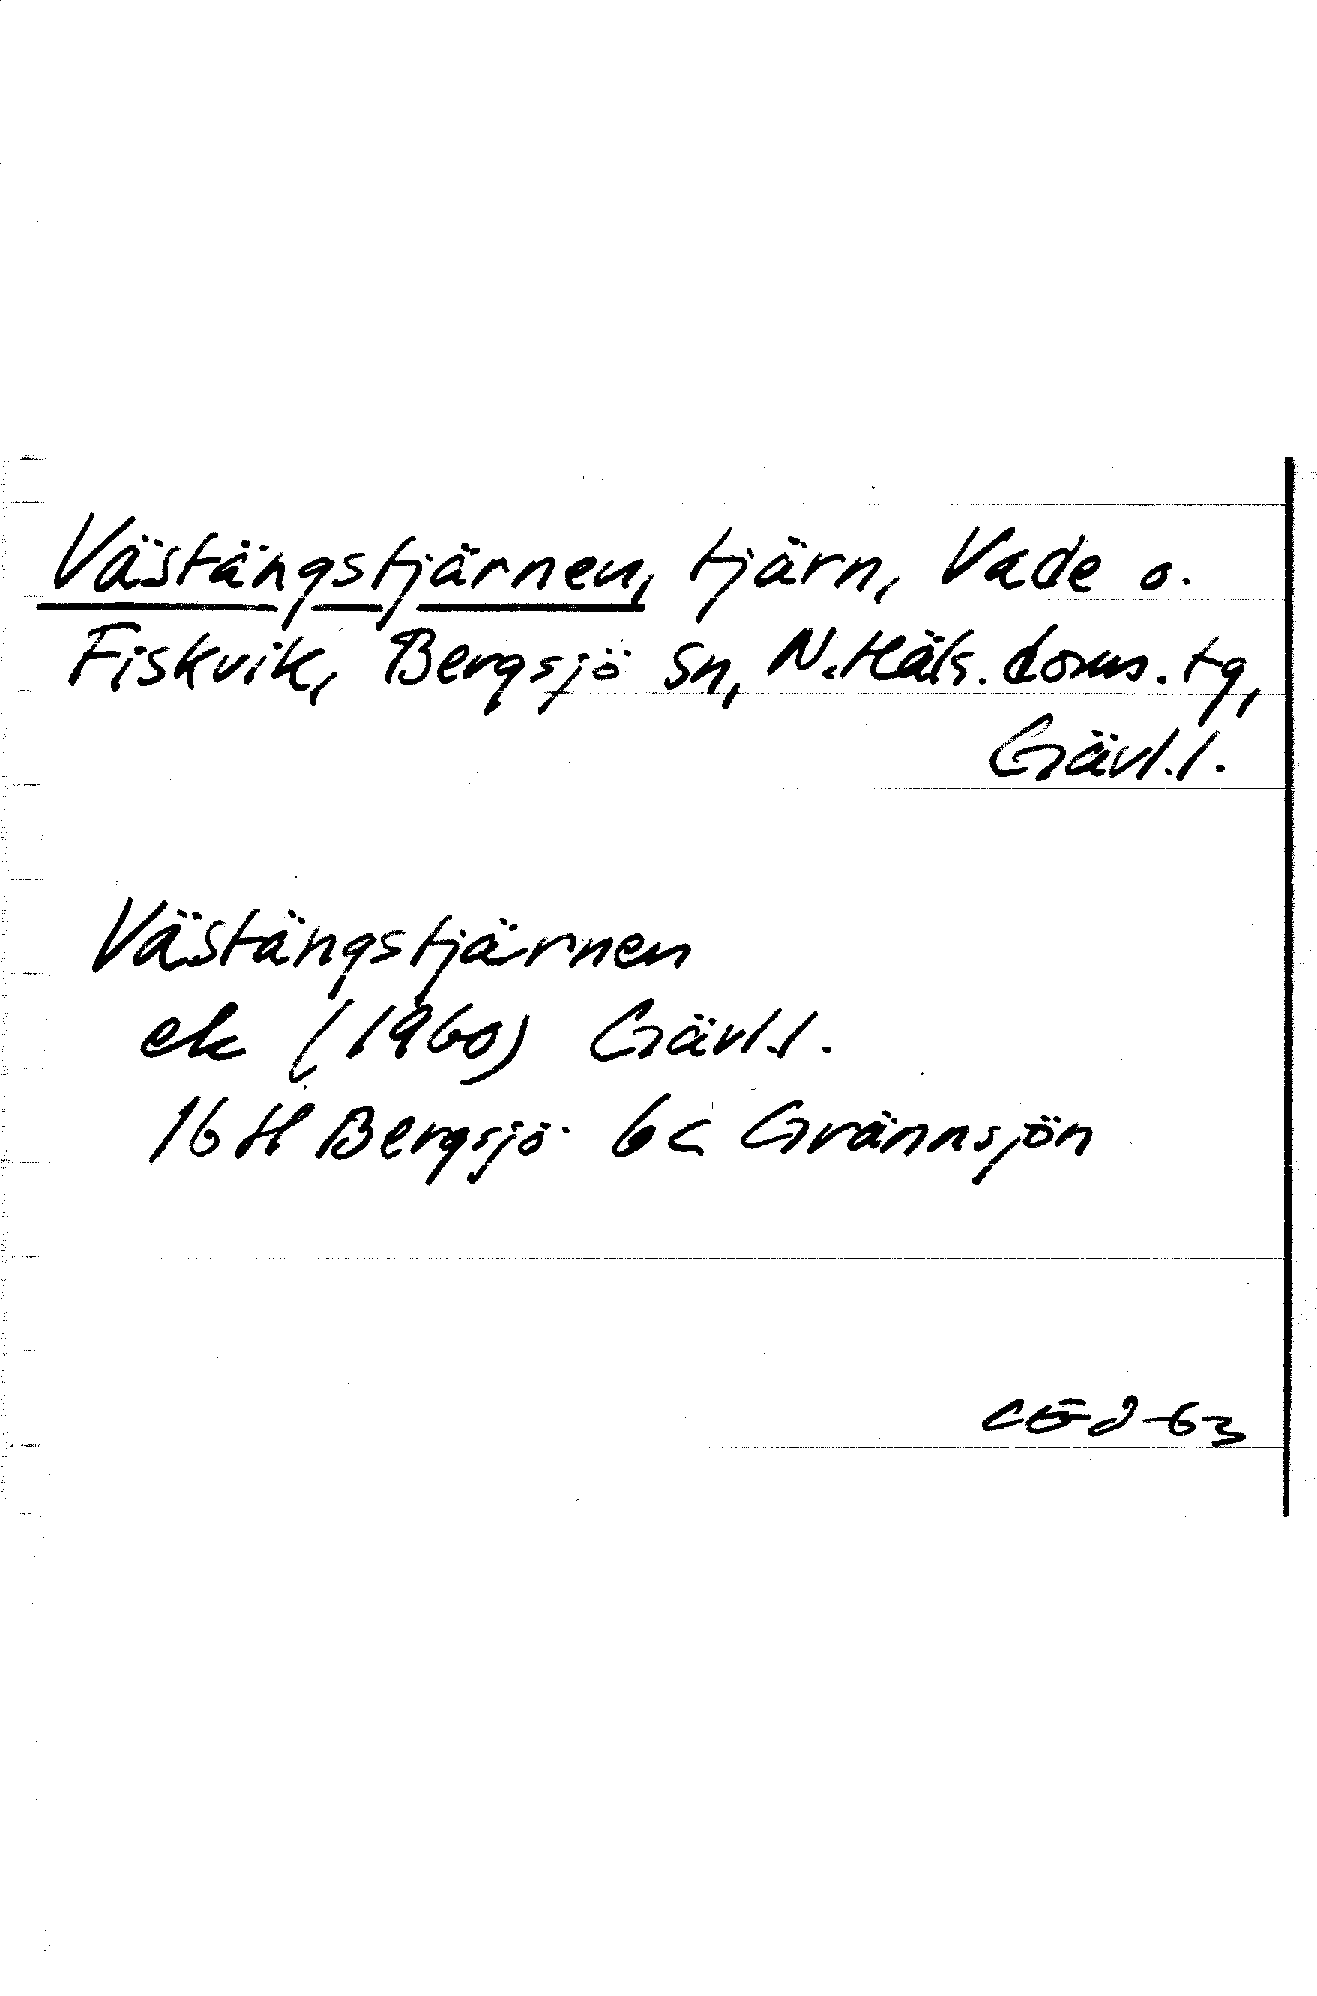 Västängstjärnen, tjärn, Vade o.
Fiskvik, Bergsjö sn, N. Häls. doms. tg,
Gävl.l.
Västängstjärnen
ek (1960) Gävl.l.
16 H Bergsjö 6c Grännsjön